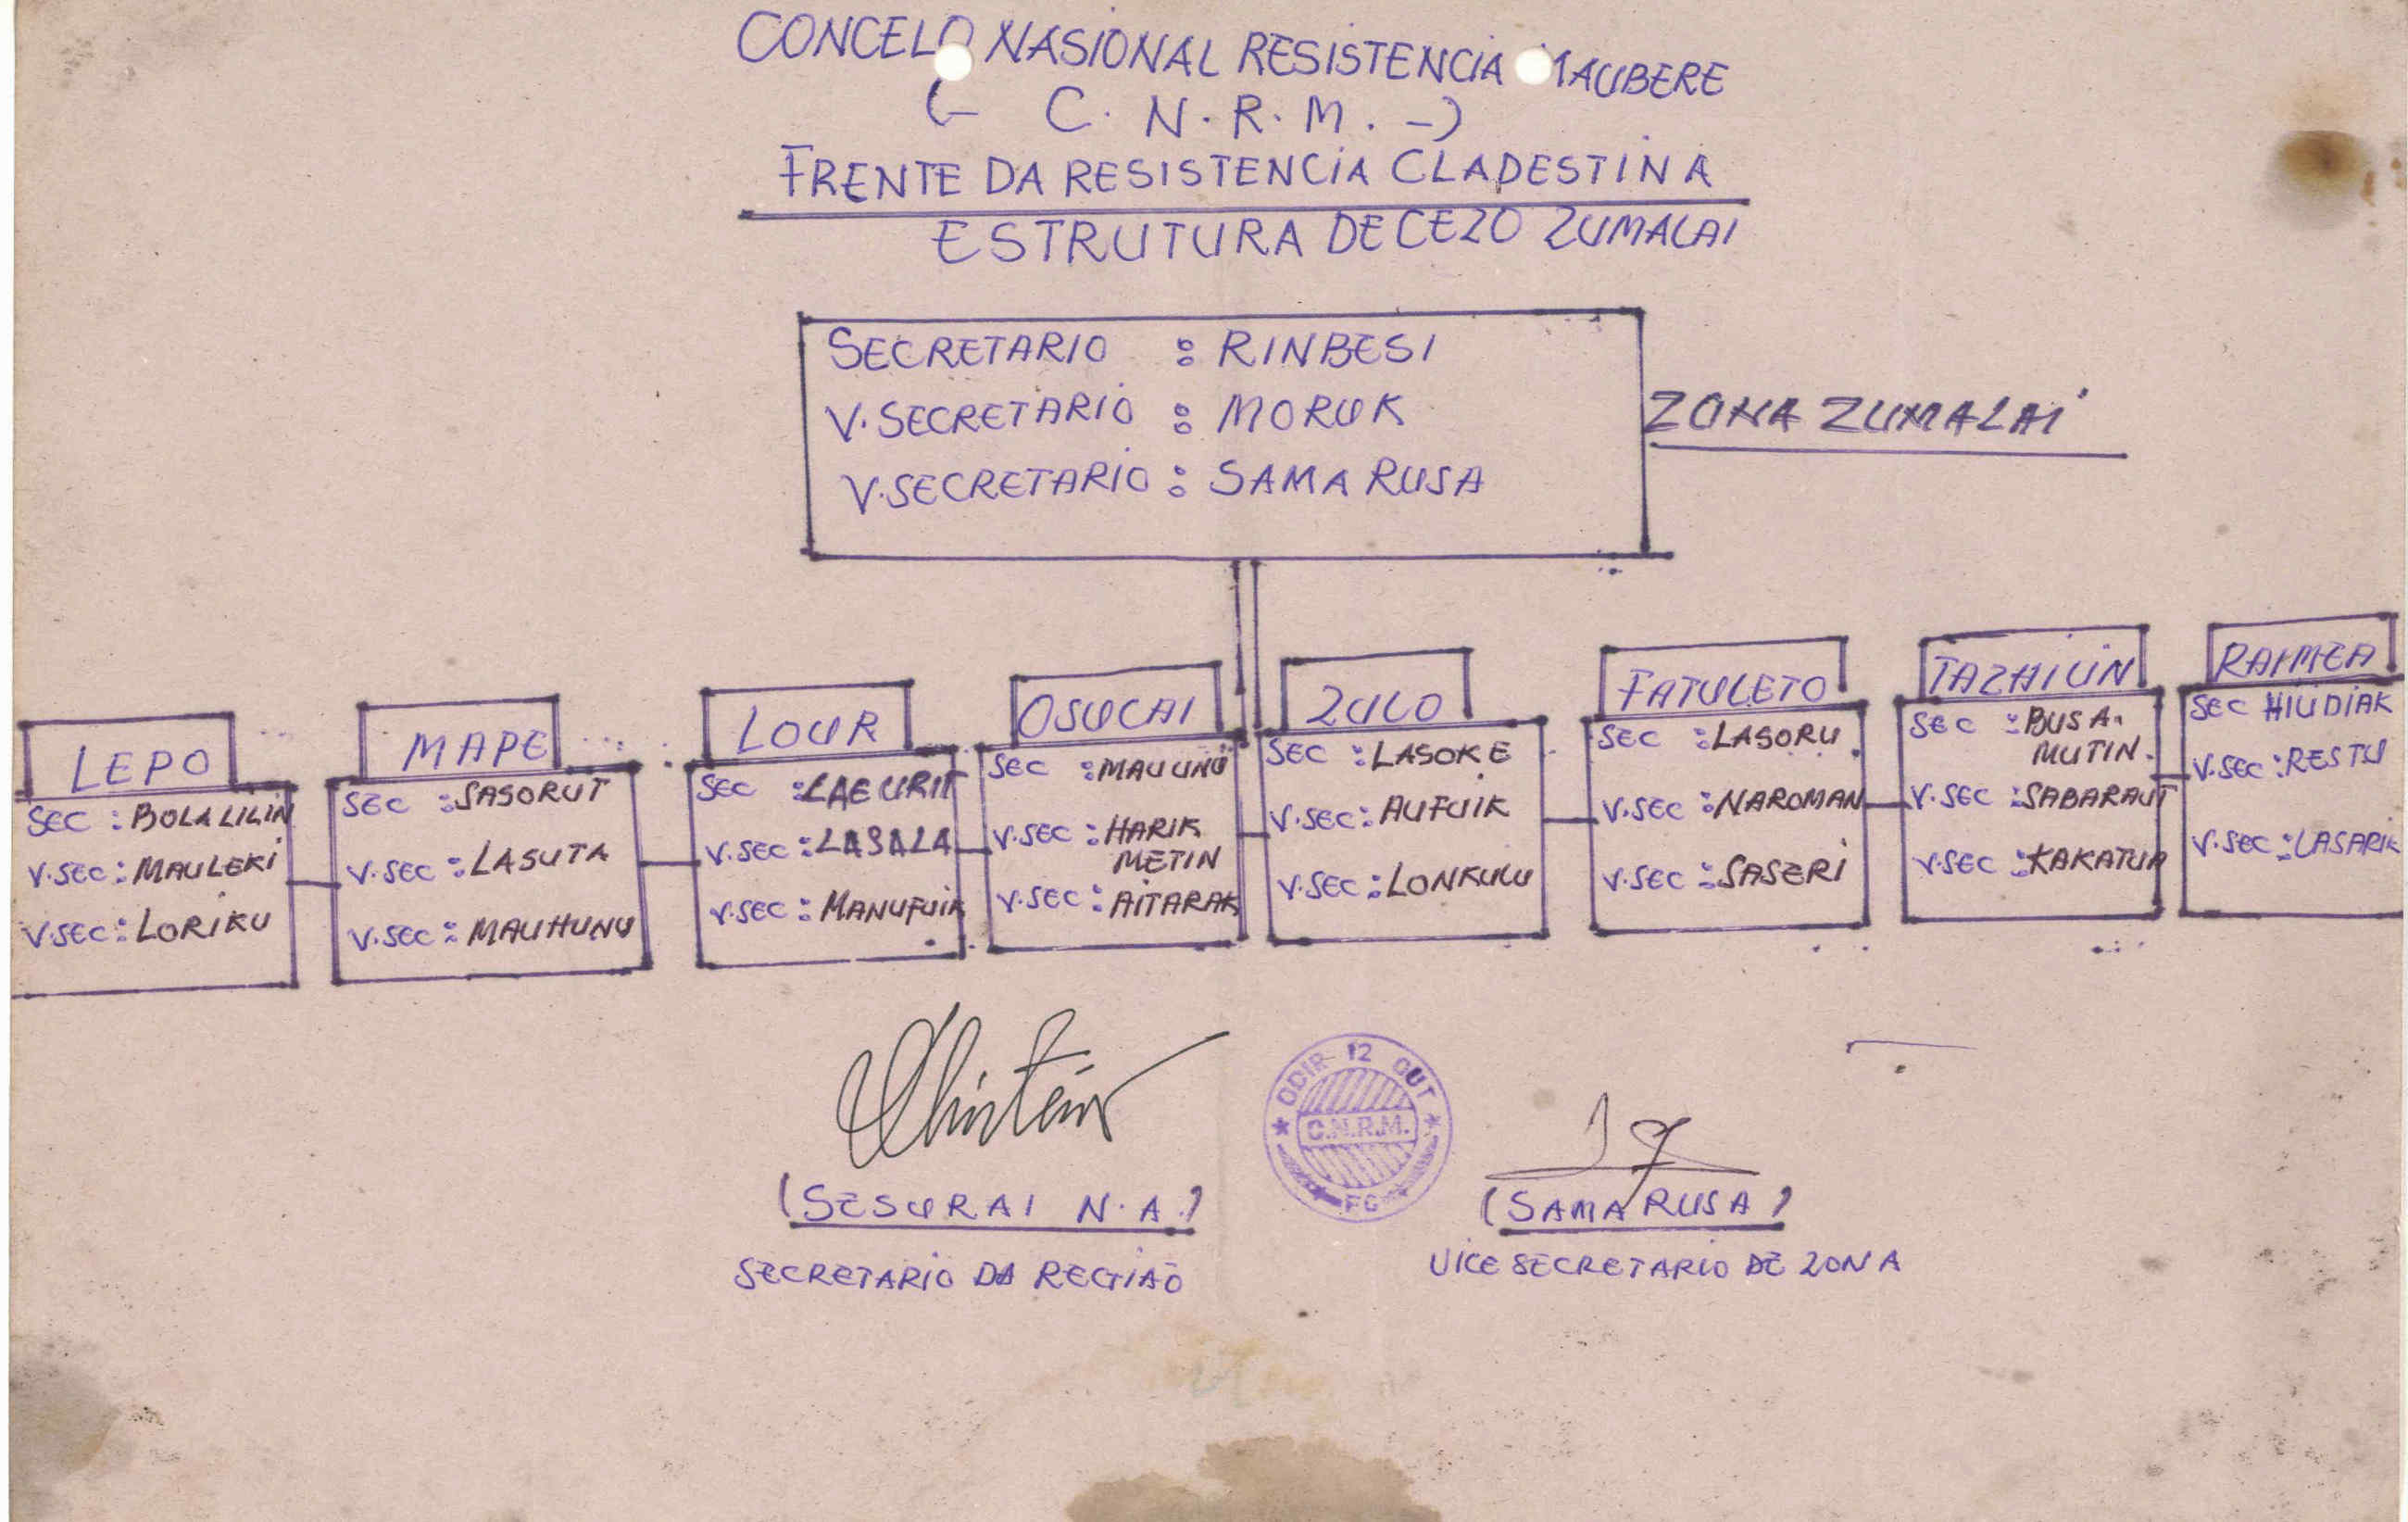 CONCELO NASIONAL RESISTENCIA MAUBERE
(- C. N. R. M. -)
FRENTE DA RESISTENCIA CLADESTINA
ESTRUTURA DE CEZO ZUMALAI
SECRETARIO : RINBESI
V. SECRETARIO : MORUK
V. SECRETARIO : SAMA RUSA
ZONA ZUMALAI
LEPO
SEC : BOLA LILIN
V.SEC : MAULEKI
V.SEC : LORIKU
MAPE
SEC : SASORUT
V.SEC : LASUTA
V.SEC : MAUHUNU
LOUR
SEC :
V.SEC : LASALA
V.SEC : MANUFUIK
OSUCAI
SEC : MAUUNU
V.SEC : HARIK
METIN
V.SEC : AITARAK
ZULO
SEC : LASOKE
V.SEC : AUFUIK
V.SEC : LONKULU
FATULETO
SEC : LASORU
V.SEC : NAROMAN
V.SEC : SASERI
TAZHILIN
SEC : BUSA.
MUTIN.
V.SEC : SABARAUT
V.SEC : KAKATUA
RAIMEA
SEC HIUDIAK
V.SEC : RESTU
V.SEC : LASARIK
ODIR 12 OUT
C.N.R.M.
FC
(SESURAI N. A.)
SECRETARIO DA REGIÃO
(SAMA RUSA)
VICE SECRETARIO DE ZONA